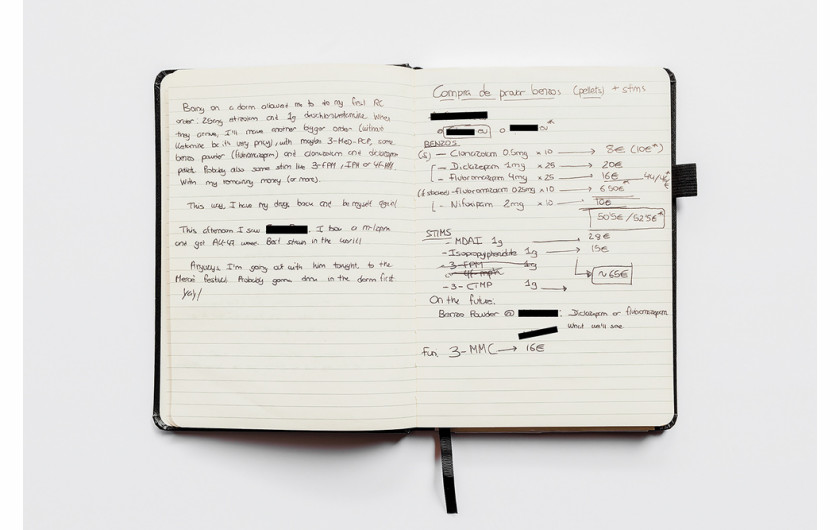 Being on a dorm allowed me to do my first RC
order: 25mg etizolam and 1g deschloroketamine. When
they arrive, I'll make another bigger order (without
Ketamine bc its very pricy), with maybe 3-MeO-PCP, some
benzos powder (flubromazepam) and clonazolam and diclazepam
pellets. Probably also some stim like 3-FPM, IPH or 4F-MPH.
With my remaining money (or more).
This way I have my drugs back and be myself again!
This afternoon I saw I bow a m-1
and get AK-47 weed. Best strain in the world!
Anyways I'm going out with him tonight to the
Mercè festival. Probably gonna drink in the dorm first.
Yay!
Compra de provar benzos (pellets) + stims
o o
BENZOS
— Clonazolam 0.5mg x10 → 8€ (10€*)
— Diclazepam 1mg x25 → 20€
— Flubromazepam 4mg x25 → 16€
flubromazolam 0.25mg x10 → 6'50€
— Nifoxipam 2mg x10 → 10€
50'5€/52'5€*
STIMS
- MDAI 1g → 28€
- Isopropylphenidate 1g → 15€
- 3-FPM 1g
- 3-CTMP 1g →
~65€
On the future:
Benzos Powder @ : Diclazepam or flubromazepam
What we'll see
Fun 3-MMC → 16€